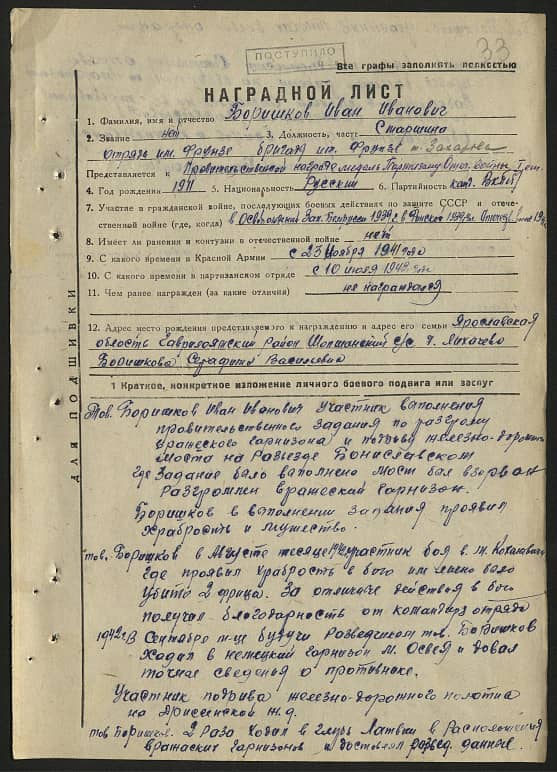 33
ПОСТУПИЛО
Все графы заполнять полностью
НАГРАДНОЙ ЛИСТ
1. Фамилия, имя и отчество Боришков Иван Иванович
2. Звание нет 3. Должность, часть Старшина
отряд им. Фрунзе бригады им. Фрунзе т. Захарова
Представляется к Правительственой награде медаль Партизану Отеч. Войны I ст.
4. Год рождения 1911 5. Национальность Русский 6. Партийность канд. ВКП(б)
7. Участие в гражданской войне, последующих боевых действиях по защите СССР и отече-
ственной войне (где, когда) в Освобождении Зап. Белоруссии 1939 г. в Финской 1939
8. Имеет ли ранения и контузии в отечественной войне нет
9. С какого времени в Красной Армии с 23 Ноября 1941 года
10. С какого времени в партизанском отряде с 10 июля 1942
11. Чем ранее награжден (за какие отличия) не награждался
12. Адрес место рождения представляемого к награждению и адрес его семьи Ярославская
область район с/с д. Лихачево
Боришкова Серафима Васильевна
ДЛЯ ПОДШИВКИ
1 Краткое, конкретное изложение личного боевого подвига или заслуг
Тов. Боришков Иван Иванович участник выполнения
провительственого задания по разгрому
вражеского гарнизона и подрыву железно-дорожн
моста на Разъезде Бониславском
где Задание было выполнено мост был взорван
Разгромлен вражеский гарнизон.
Боришков в выполнении задания проявил
храбрость и мужество.
тов. Боришков в Августе месяце 1942 участник боя в м.
где проявил храбрость в бою им лично было
убито 2 фрица. За отличные действия в бою
получил благодарность от командира отряда
1942 г. В Сентябре м-це будучи Разведчиком тов. Боришков
Ходил в немецкий гарнизон м. Освея и довал
точные сведения о противнике.
Участник подрыва железно-дорожного полотна
на Дриссенской ж.д.
тов Боришков. 2 Раза ходил в глубь Латвии в Расположения
вражаских гарнизонов и доставлял развед. данные.